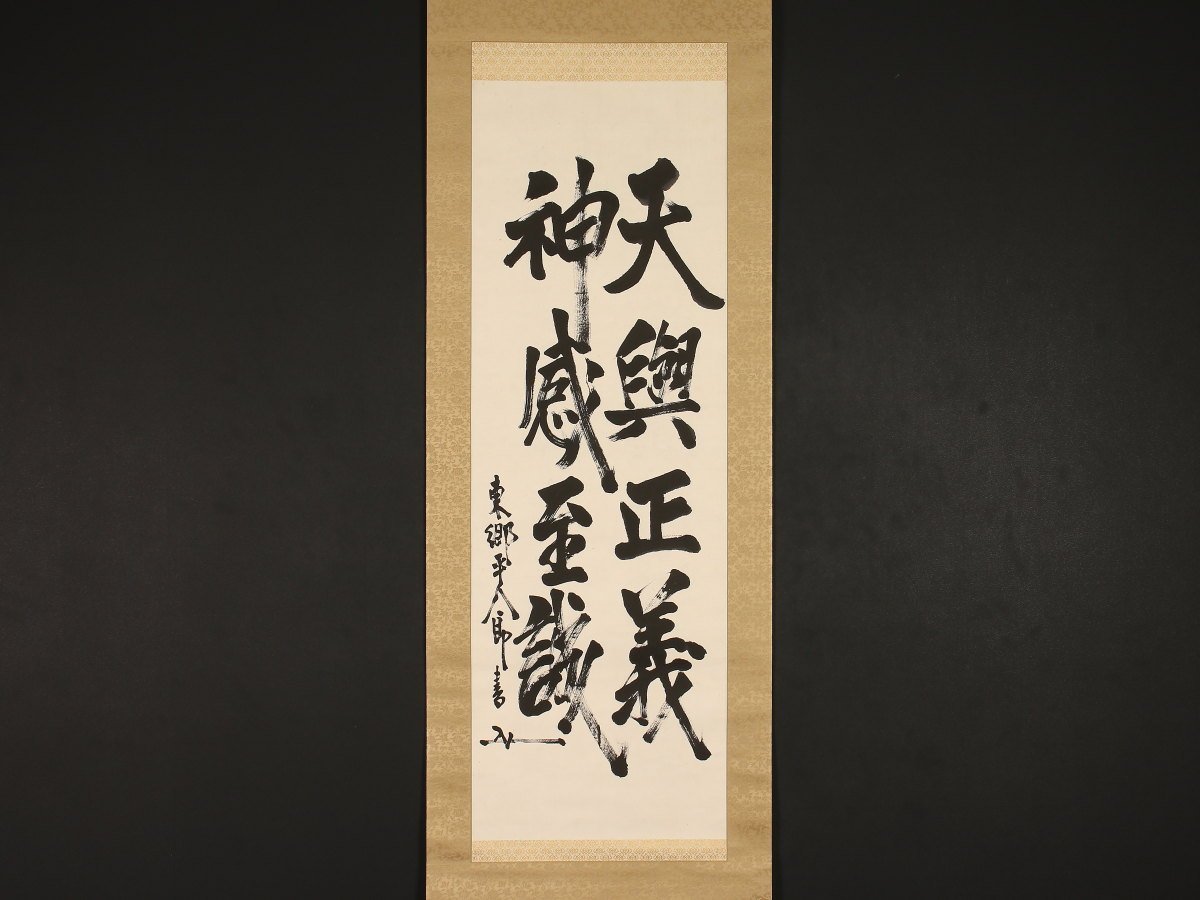 天與正義
神感至誠
東郷平八郎書